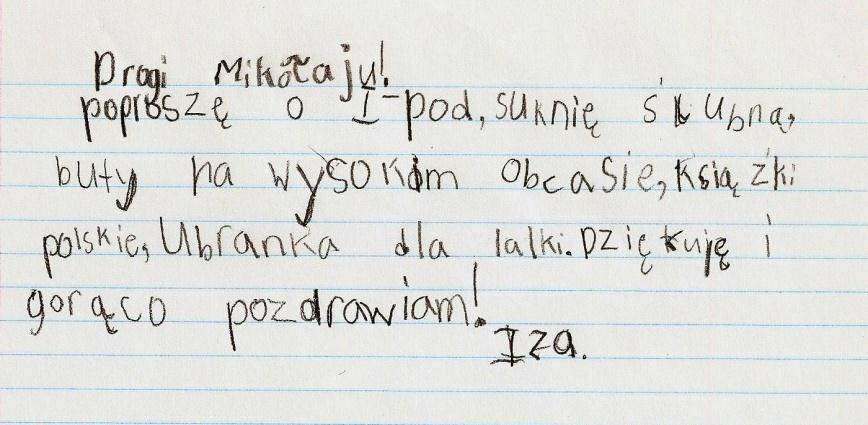 Drogi Mikołaju!
poproszę o I-pod, suknię ślubną,
buty na wysokim obcasie, książki
polskie, Ubranka dla lalki. Dziękuję i
gorąco pozdrawiam!
Iza.